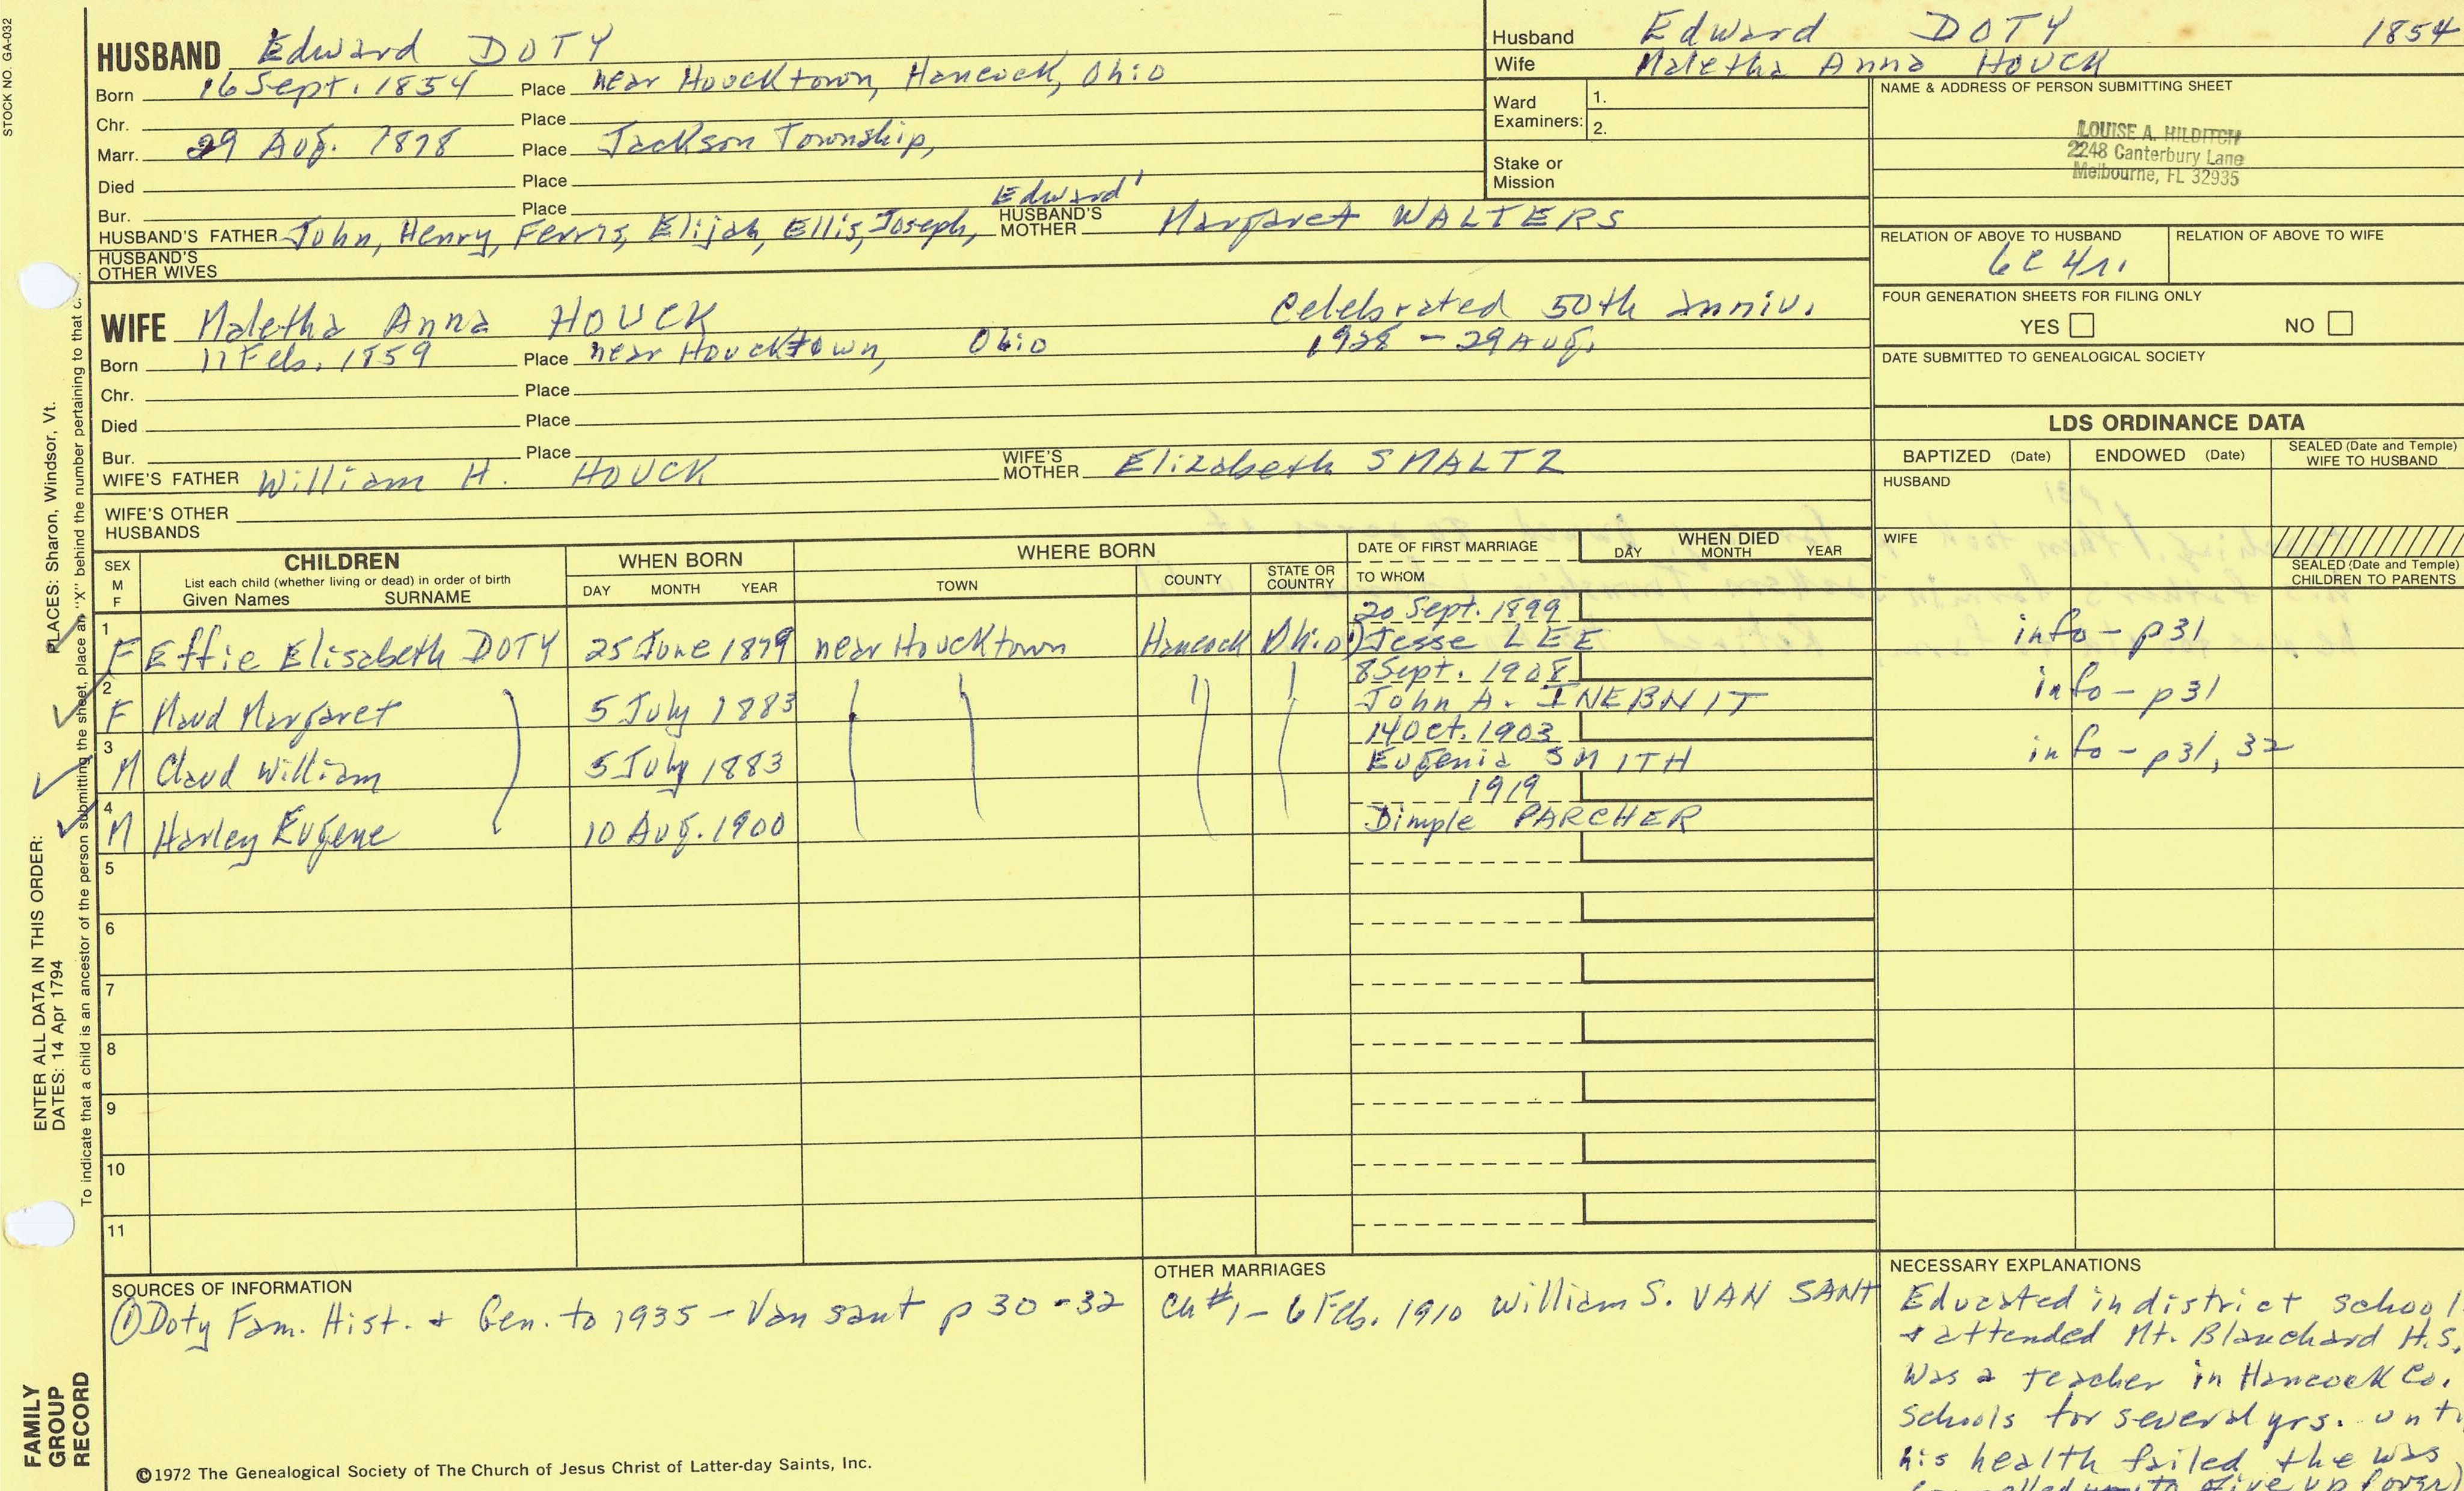 STOCK NO. GA-032
HUSBAND Edward DOTY
Born 16 Sept. 1854 Place near Houcktown, Hancock, Ohio
Chr. Place
Marr. 29 Aug. 1878 Place Jackson Township,
Died Place
Bur. Place
Edward'
HUSBAND'S FATHER John, Henry, Ferris, Elijah, Ellis, Joseph, HUSBAND'S MOTHER Margaret WALTERS
HUSBAND'S OTHER WIVES
Husband Edward DOTY 1854
Wife Maletha Anna HOUCK
Ward Examiners: 1.
2.
Stake or Mission
NAME & ADDRESS OF PERSON SUBMITTING SHEET
LOUISE A. HILDITCH
2248 Canterbury Lane
Melbourne, FL 32935
RELATION OF ABOVE TO HUSBAND RELATION OF ABOVE TO WIFE
6C 4r.
FOUR GENERATION SHEETS FOR FILING ONLY
YES NO
DATE SUBMITTED TO GENEALOGICAL SOCIETY
WIFE Maletha Anna HOUCK Celebrated 50th anniv.
Born 11 Feb. 1859 Place near Houcktown, Ohio 1928 - 29 Aug.
Chr. Place
Died Place
Bur. Place
WIFE'S FATHER William H. HOUCK WIFE'S MOTHER Elizabeth SMALTZ
WIFE'S OTHER HUSBANDS
LDS ORDINANCE DATA
BAPTIZED (Date) ENDOWED (Date) SEALED (Date and Temple) WIFE TO HUSBAND
HUSBAND
WIFE
SEALED (Date and Temple) CHILDREN TO PARENTS
SEX M F CHILDREN List each child (whether living or dead) in order of birth Given Names SURNAME
WHEN BORN DAY MONTH YEAR
WHERE BORN TOWN COUNTY STATE OR COUNTRY
DATE OF FIRST MARRIAGE TO WHOM
WHEN DIED DAY MONTH YEAR
20 Sept. 1899
1 F Effie Elisabeth DOTY 25 June 1879 near Houcktown Hancock Ohio 1) Jesse LEE info - p31
8 Sept. 1908
2 F Maud Margaret 5 July 1883 John A. INEBNIT info - p31
14 Oct. 1903
3 M Claud William 5 July 1883 Eugenia SMITH info - p31, 32
1919
4 M Harley Eugene 10 Aug. 1900 Dimple PARCHER
5
6
7
8
9
10
11
SOURCES OF INFORMATION
① Doty Fam. Hist. + Gen. to 1935 - Van Sant p 30-32
OTHER MARRIAGES
Ch #1 - 6 Feb. 1910 William S. VAN SANT
NECESSARY EXPLANATIONS
Educated in district school
+ attended Mt. Blanchard H.S.
Was a teacher in Hancock Co.
schools for several yrs. unti
his health failed + he was
to give up
©1972 The Genealogical Society of The Church of Jesus Christ of Latter-day Saints, Inc.
FAMILY GROUP RECORD
ENTER ALL DATA IN THIS ORDER:
DATES: 14 Apr 1794
PLACES: Sharon, Windsor, Vt.
To indicate that a child is an ancestor of the person submitting the sheet, place an "X" behind the number pertaining to that c